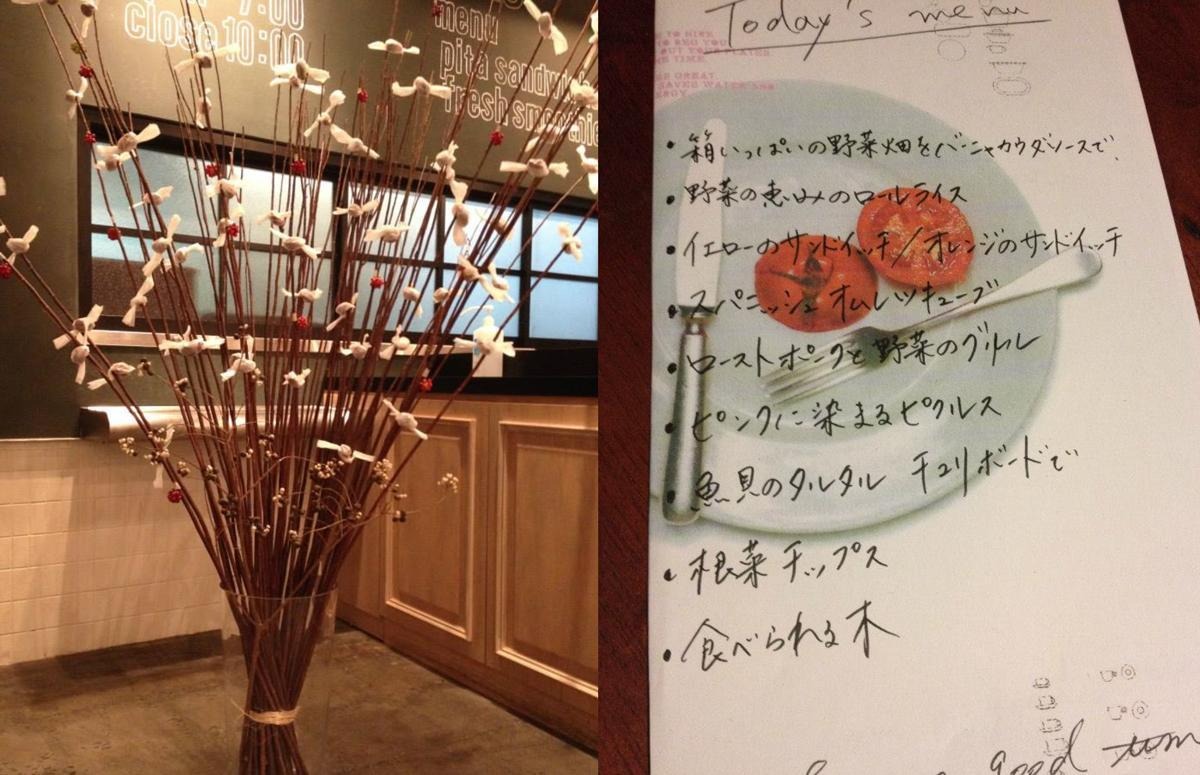 7:00
close 10:00
menu
pita sandwich
fresh smoothie
Today's menu
TO NICE
TO SEO YOU
OUT YOUR PLATES
TIME.
GREAT.
SAVES WATER AND
・箱いっぱいの野菜畑をバーニャカウダソースで、
・野菜の恵みのロールライス
・イエローのサンドイッチ/オレンジのサンドイッチ
・スパニッシュオムレツキューブ
・ローストポークと野菜のグリル
・ピンクに染まるピクルス
・魚貝のタルタル チュリボードで
・根菜チップス
・食べられる木
good